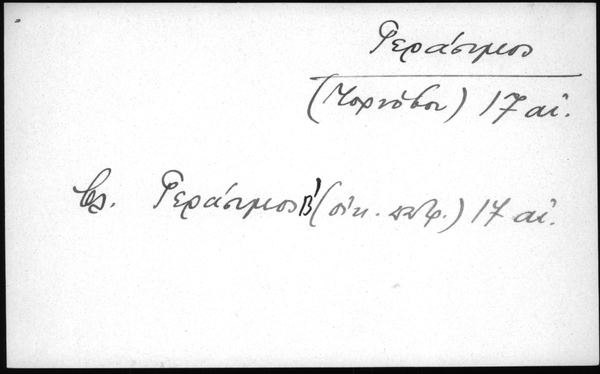 Γεράσιμος
(Τορνόβου) 17 αἰ.
βλ. Γεράσιμος Β' (οἰκ. πατρ.) 17 αἰ.